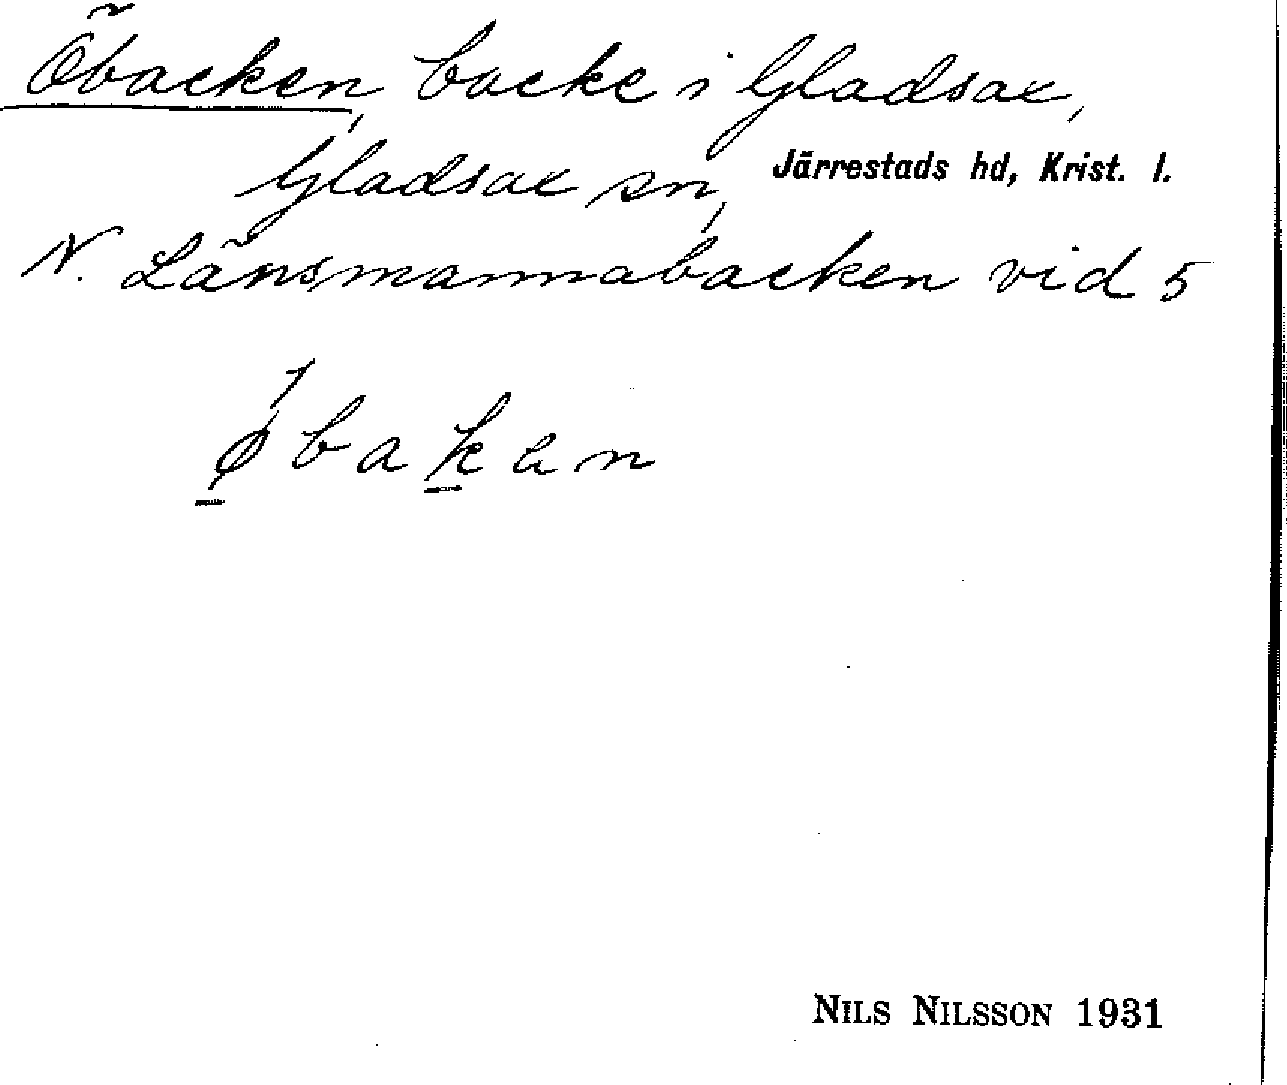 Öbacken, backe i Gladsax,
Gladsax sn, Järrestads hd, Krist. l.
N. Länsmannabacken vid 5
øbakan
NILS NILSSON 1931